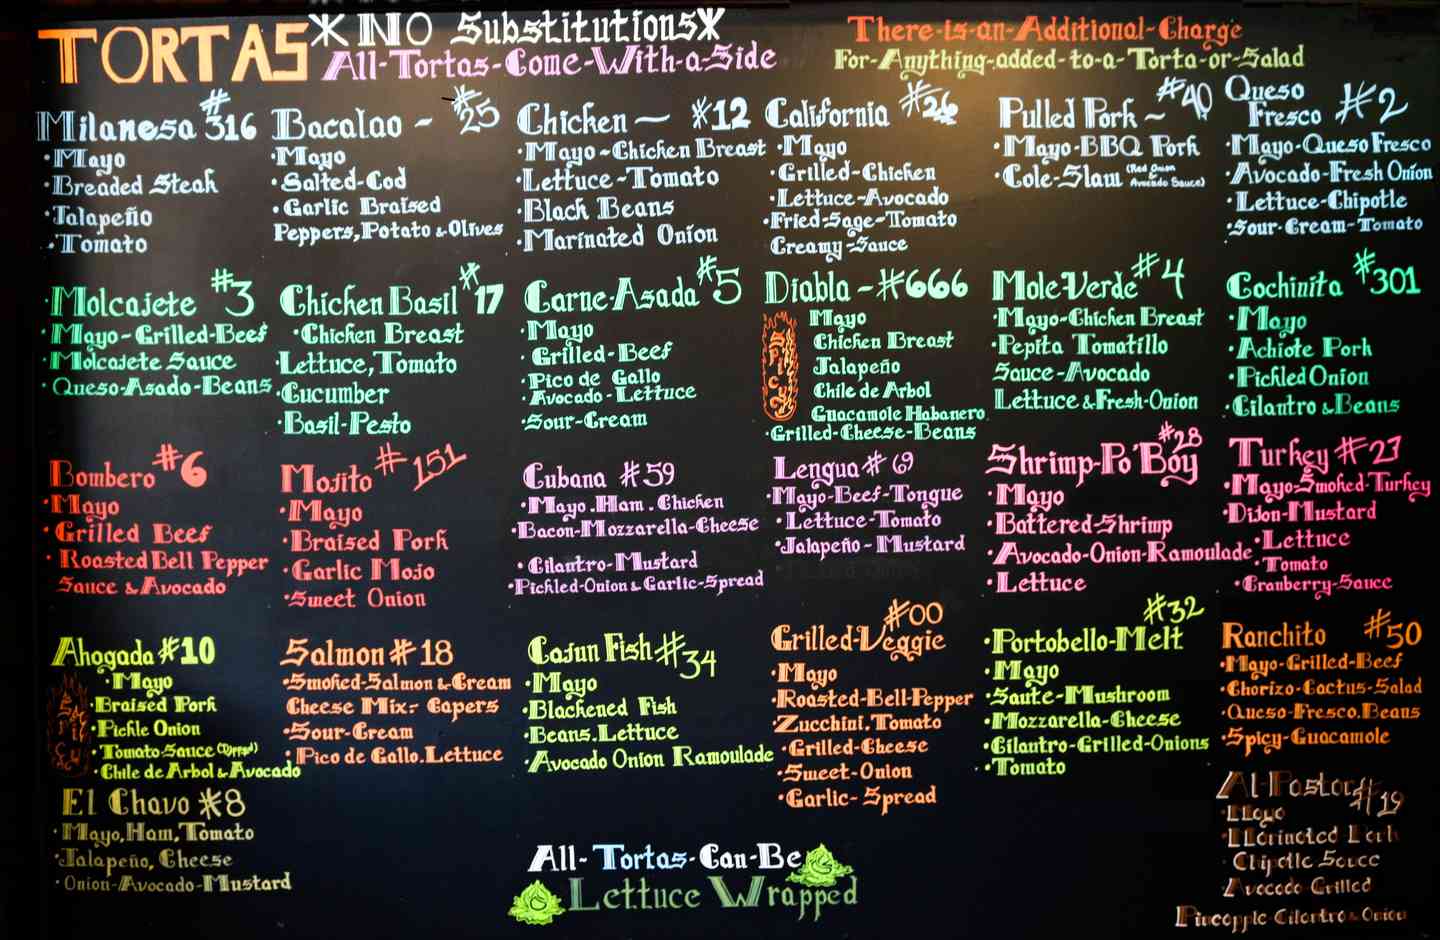 TORTAS
*NO Substitutions*
All-Tortas-Come-With-a-Side
There-is-an-Additional-Charge
For-Anything-added-to-a-Torta-or-Salad
Milanesa #316
·Mayo
·Breaded Steak
·Jalapeño
·Tomato
Bacalao - #25
·Mayo
·Salted-Cod
·Garlic Braised
Peppers, Potato & Olives
Chicken — #12
·Mayo-Chicken Breast
·Lettuce-Tomato
·Black Beans
·Marinated Onion
California #26
·Mayo
·Grilled-Chicken
·Lettuce-Avocado
·Fried-Sage-Tomato
Creamy-Sauce
Pulled Pork ~ #40
·Mayo-BBQ Pork
·Cole-Slaw (Red Onion
Avocado Sauce)
Queso
Fresco #2
·Mayo-Queso Fresco
·Avocado-Fresh Onion
·Lettuce-Chipotle
·Sour-Cream-Tomato
Molcajete #3
·Mayo-Grilled-Beef
·Molcajete Sauce
·Queso-Asado-Beans
Chicken Basil #17
·Chicken Breast
·Lettuce, Tomato
·Cucumber
·Basil-Pesto
Carne-Asada #5
·Mayo
·Grilled-Beef
·Pico de Gallo
·Avocado-Lettuce
·Sour-Cream
Diabla - #666
Spicy
Mayo
Chicken Breast
Jalapeño
Chile de Arbol
Guacamole Habanero
·Grilled-Cheese-Beans
Mole-Verde #4
·Mayo-Chicken Breast
·Pepita Tomatillo
Sauce-Avocado
Lettuce & Fresh-Onion
Cochinita #301
·Mayo
·Achiote Pork
·Pickled Onion
·Cilantro & Beans
Bombero #6
·Mayo
·Grilled Beef
·Roasted Bell Pepper
Sauce & Avocado
Mojito #151
·Mayo
·Braised Pork
·Garlic Mojo
·Sweet Onion
Cubana #59
·Mayo.Ham.Chicken
·Bacon-Mozzarella-Cheese
·Cilantro-Mustard
·Pickled-Onion & Garlic-Spread
Lengua #69
·Mayo-Beef-Tongue
·Lettuce-Tomato
·Jalapeño-Mustard
Shrimp-Po'Boy #28
·Mayo
·Battered-Shrimp
·Avocado-Onion-Ramoulade
·Lettuce
Turkey #27
·Mayo-Smoked-Turkey
·Dijon-Mustard
·Lettuce
·Tomato
·Cranberry-Sauce
Ahogada #10
Spicy
·Mayo
·Braised Pork
·Pickle Onion
·Tomato-Sauce
·Chile de Arbol & Avocado
Salmon #18
·Smoked-Salmon & Cream
Cheese Mix- Capers
·Sour-Cream
·Pico de Gallo.Lettuce
Cajun Fish #34
·Mayo
·Blackened Fish
·Beans.Lettuce
·Avocado Onion Ramoulade
Grilled-Veggie #00
·Mayo
·Roasted-Bell-Pepper
·Zucchini.Tomato
·Grilled-Cheese
·Sweet-Onion
·Garlic-Spread
Portobello-Melt #32
·Mayo
·Saute-Mushroom
·Mozzarella-Cheese
·Cilantro-Grilled-Onions
·Tomato
Ranchito #50
·Mayo-Grilled-Beef
·Chorizo-Cactus-Salad
·Queso-Fresco.Beans
·Spicy-Guacamole
El Chavo #8
·Mayo, Ham, Tomato
·Jalapeño, Cheese
·Onion-Avocado-Mustard
Al-Pastor #19
·Mayo
·Marinated Pork
·Chipotle Sauce
·Avocado-Grilled
Pineapple Cilantro & Onion
All-Tortas-Can-Be
Lettuce Wrapped